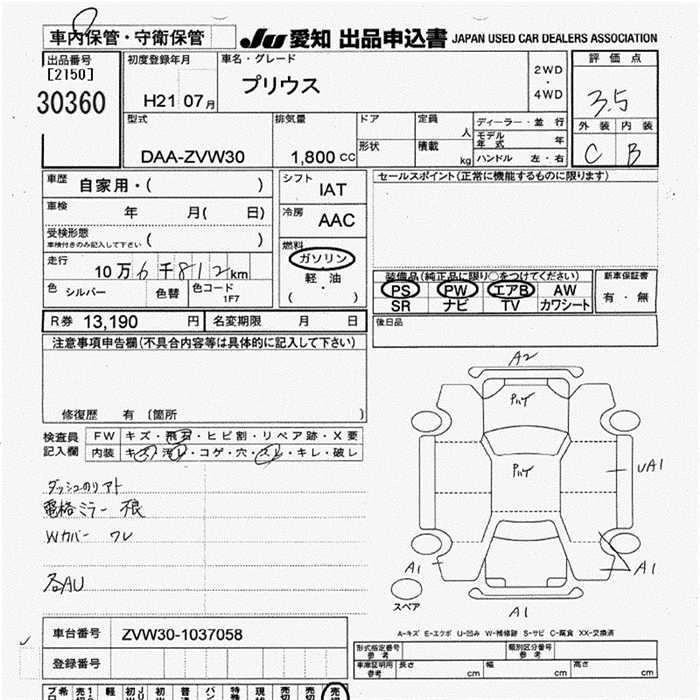 車内保管・守衛保管
JU 愛知 出品申込書 JAPAN USED CAR DEALERS ASSOCIATION
出品番号
[2150]
30360
初度登録年月
H21 07月
車名・グレード
プリウス
2WD
・
4WD
評価点
3.5
外装 内装
C B
型式
DAA-ZVW30
排気量
1,800 cc
ドア
形状
定員
人
積載
kg
ディーラー・並 行
モデル年式 年
ハンドル 左・右
車歴 自家用・( )
車検 年 月( 日)
受検形態
車検付きのみ記入して下さい ( )
走行
10万6千812km
色 シルバー 色替 色コード 1F7
シフト IAT
冷房 AAC
燃料
ガソリン
軽・油
( )
セールスポイント(正常に機能するものに限ります)
装備品(純正品に限り○をつけてください)
PS PW エアB AW
SR ナビ TV カワシート
新車保証書
有・無
R券 13,190 円 名変期限 月 日
後日品
注意事項申告欄(不具合内容等は具体的に記入して下さい)
修復歴 有 〔箇所 〕
検査員
記入欄
FW キズ・飛石・ヒビ割・リペア跡・X要
内装 キズ・汚レ・コゲ・穴・スレ・キレ・破レ
電格ミラー 不良
Wカバー ワレ
各AU
A2
UA1
A1
A1
A1
スペア
A-キズ E-エクボ U-凹み W-補修跡 S-サビ C-腐食 XX-交換済
車台番号 ZVW30-1037058
登録番号
形式指定番号
参考
類別区分番号
参考
車庫証明用
参考
長さ cm 幅 cm 高さ cm